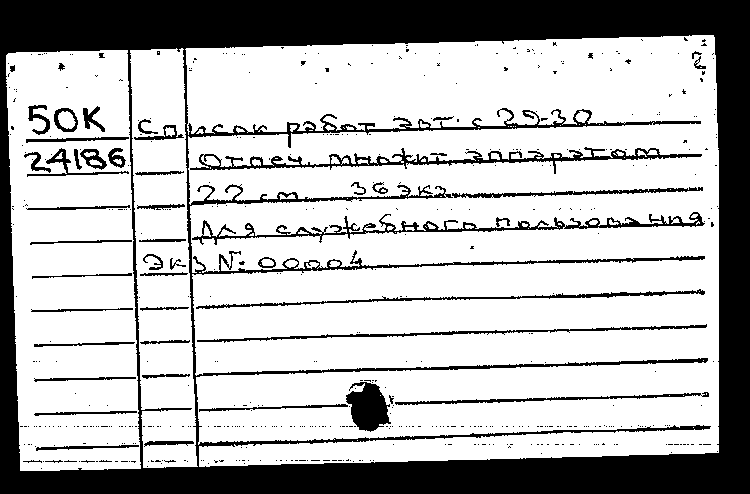 2
50К Список работ авт. с 29-30.
24186 Отпеч. множит. аппаратом
22 см. 36 экз.
Для служебного пользования.
Экз № 00004